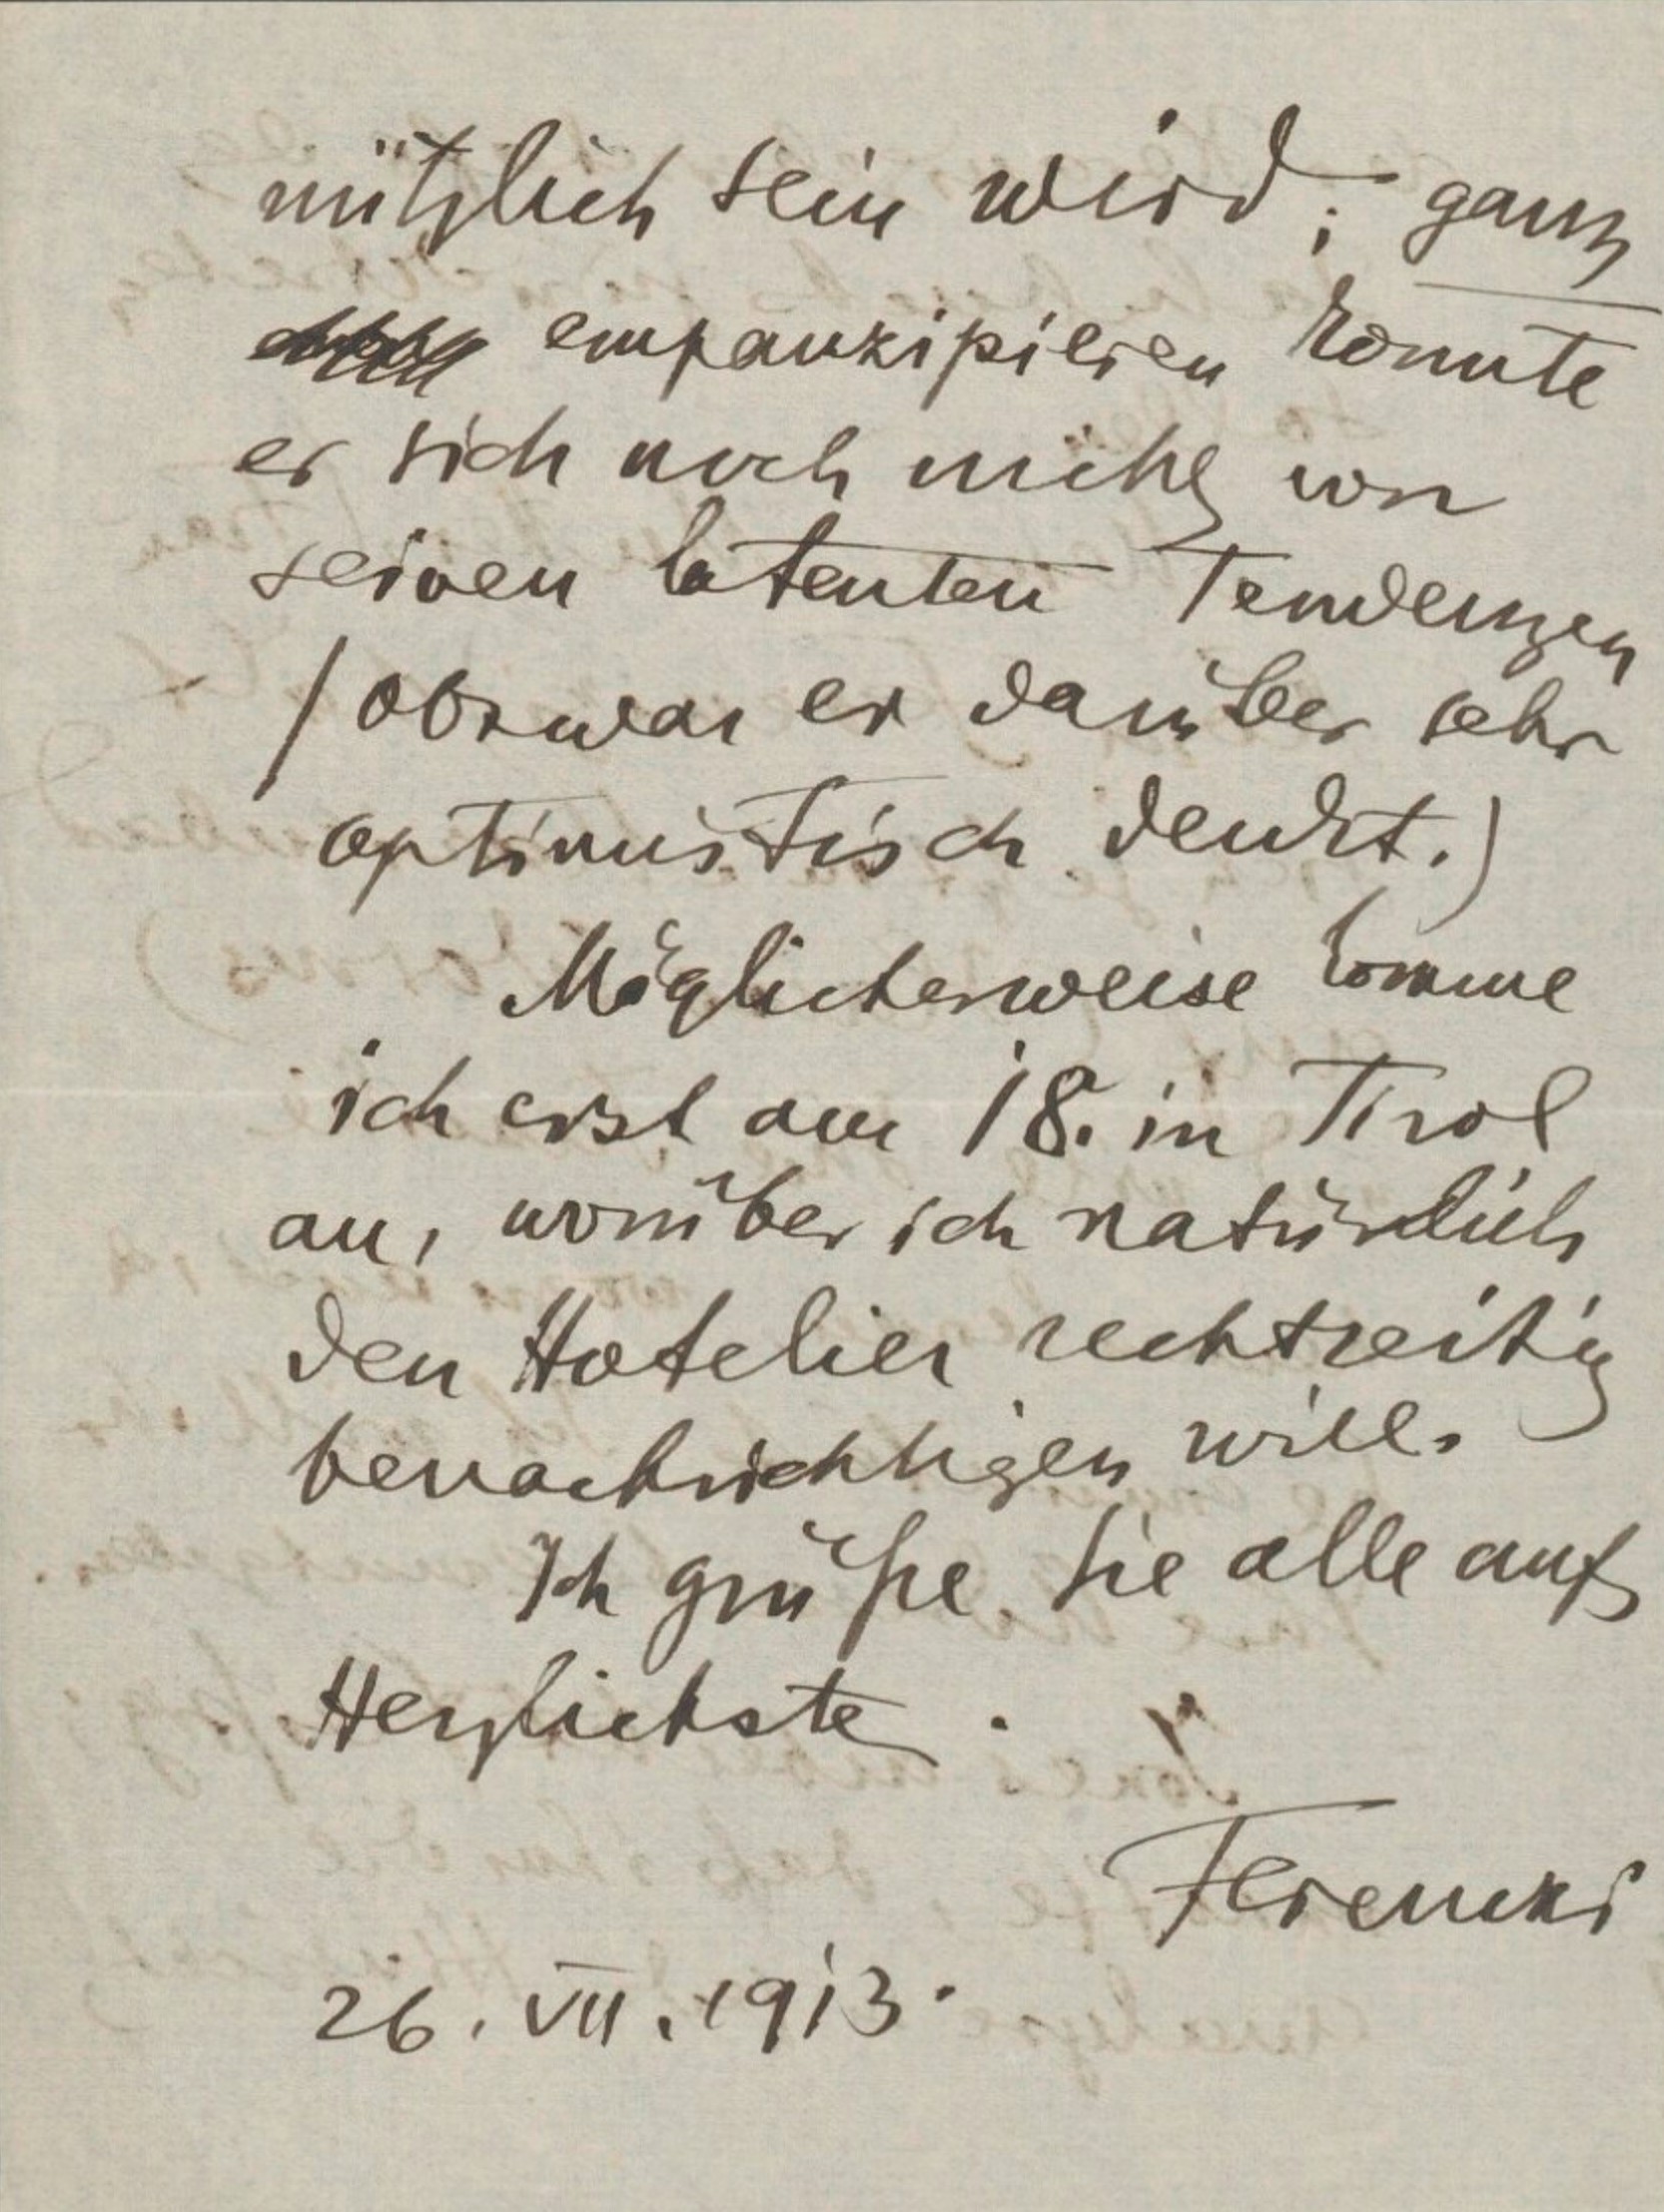 nützlich sein wird; ganz
empanzipieren konnte
er sich noch nicht von
seinen latenten Tendenzen
(obzwar er darüber sehr
optimistisch denkt.)
Möglicherweise komme
ich erst am 18. in Tirol
an, worüber ich natürlich
den Hotelier rechtzeitig
benachrichtigen will.
Ich grüße Sie alle aufs
Herzlichste.
Ferenczi
26. VII. 1913.